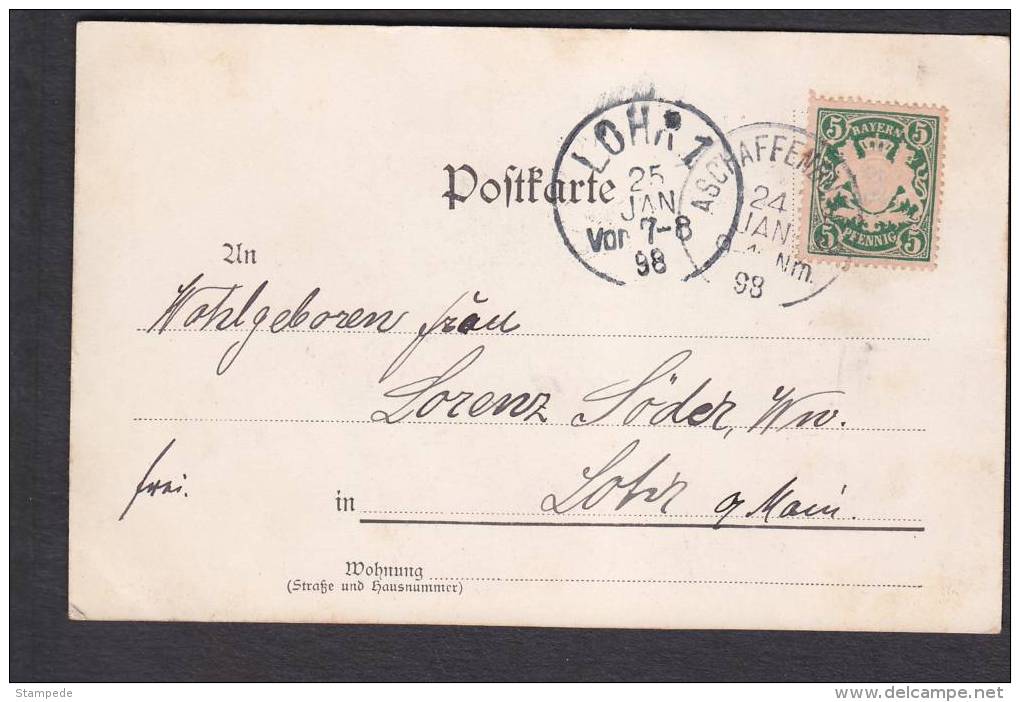 LOHR 1
25
JAN
Vor 7-8
98
ASCHAFFENB
24
JAN
Nm.
98
5 5
BAYERN
PFENNIG
5 5
Postkarte
An
Wohlgeboren Frau
Lorenz Söder, Ww.
frei.
in Lohr a/Main.
Wohnung
(Straße und Hausnummer)
Stampede
www.delcampe.net